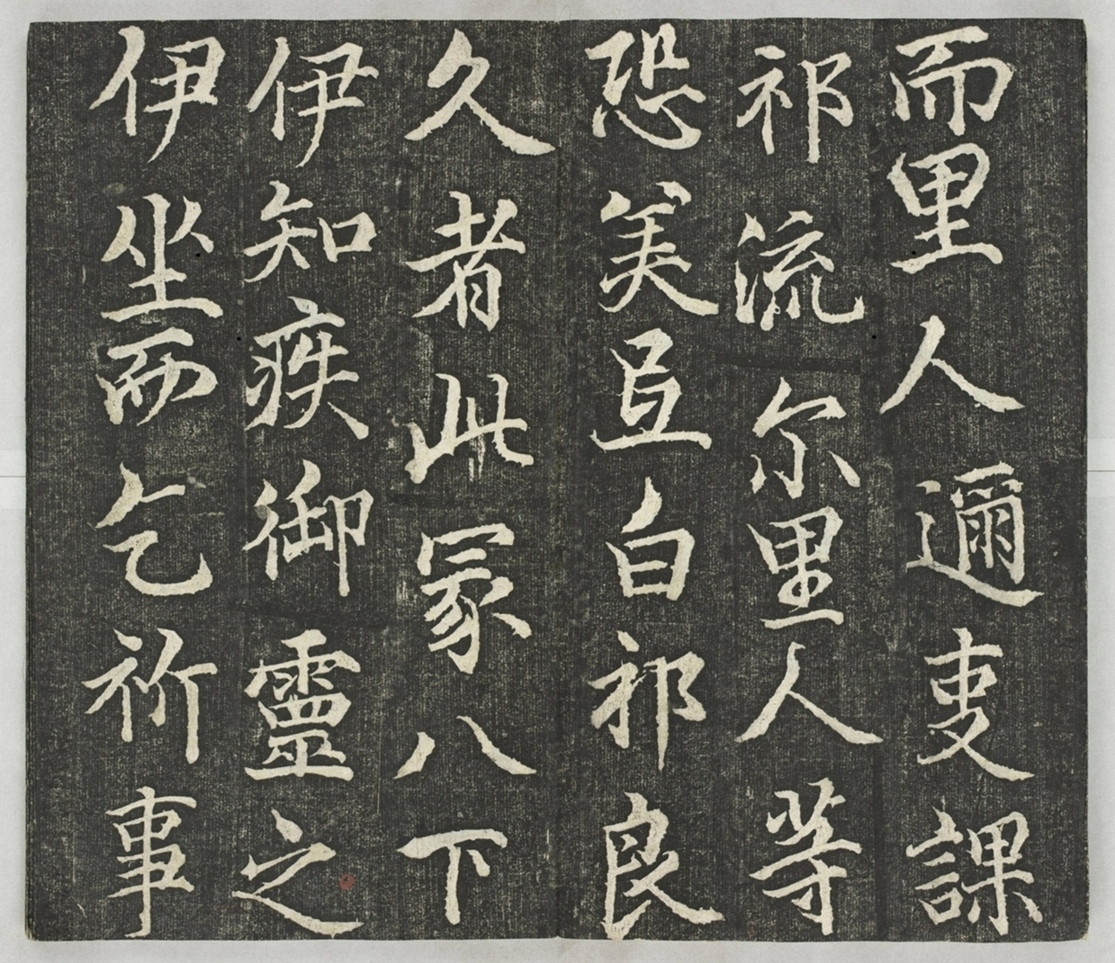 而里人邇吏課
祁流尔里人等
恐美且白祁良
久者此冢八下
伊知疾御靈之
伊坐而乞祈事